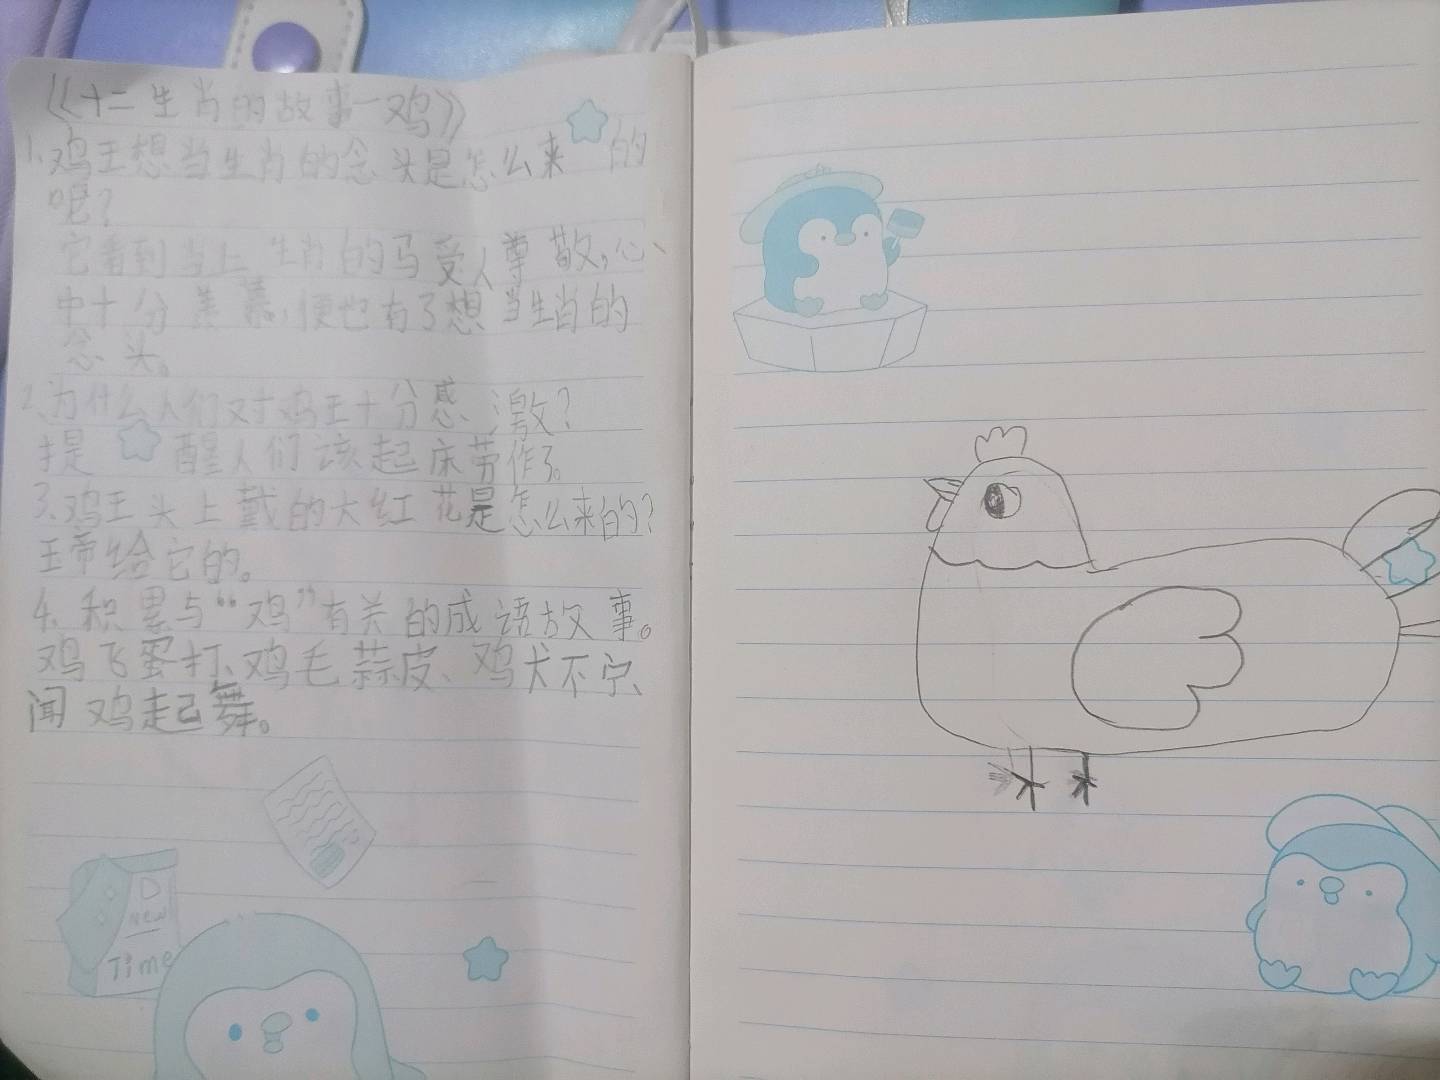 《十二生肖的故事-鸡》
1.鸡王想当生肖的念头是怎么来的
呢？
它看到当上生肖的马受人尊敬,心
中十分羡慕,便也有了想当生肖的
念头。
2.为什么人们对鸡王十分感激？
提醒人们该起床劳作了。
3.鸡王头上戴的大红花是怎么来的？
玉帝给它的。
4.积累与“鸡”有关的成语故事。
鸡飞蛋打、鸡毛蒜皮、鸡犬不宁、
闻鸡起舞。
D
New
Time